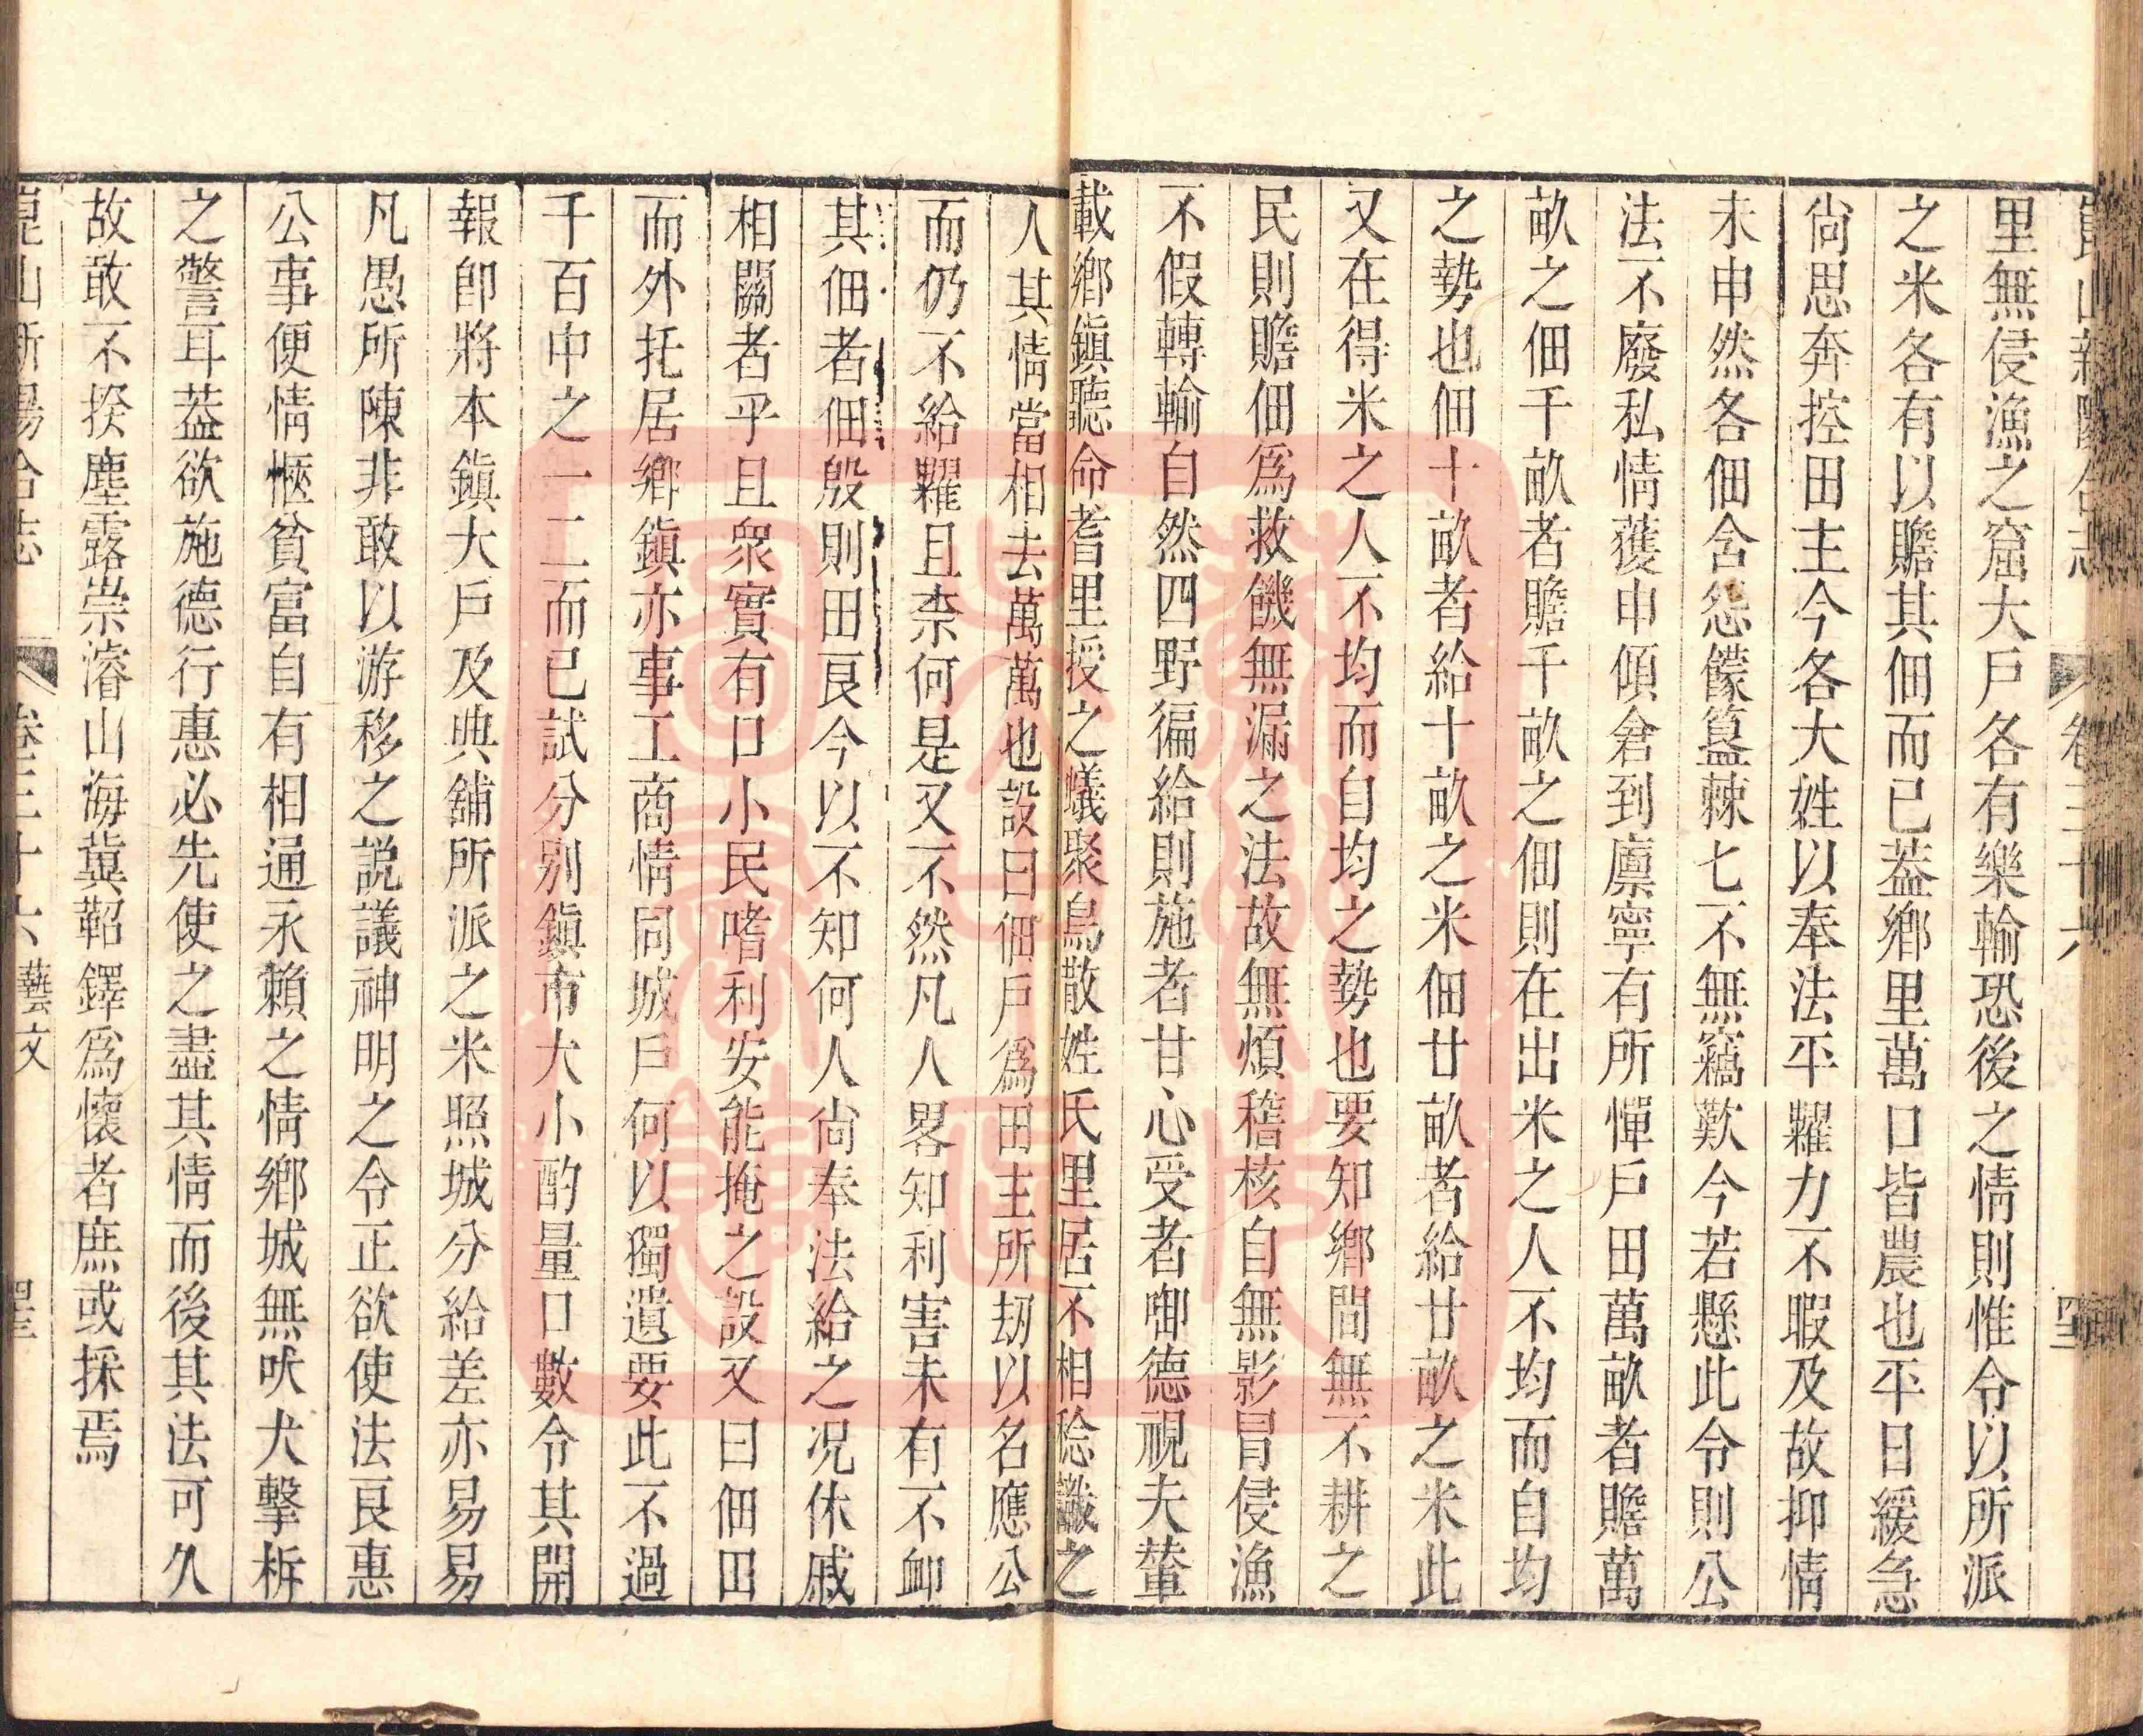 崑山新陽合志　卷三十六
里無侵漁之窟大戶各有樂輸恐後之情則惟令以所派
之米各有以贍其佃而已葢鄉里萬口皆農也平日緩急
尙思奔控田主今各大姓以奉法平糶力不暇及故抑情
未申然各佃含怨饛簋棘匕不無竊歎今若懸此令則公
法不廢私情獲申傾倉到廪寧有所憚戶田萬畝者贍萬
畝之佃千畝者贍千畝之佃則在出米之人不均而自均
之勢也佃十畝者給十畝之米佃廿畝者給廿畝之米此
又在得米之人不均而自均之勢也要知鄉間無不耕之
民則贍佃爲救饑無漏之法故無煩稽核自無影冒侵漁
不假轉輸自然四野徧給則施者甘心受者啣德視夫輦
載鄉鎭聽命耆里授之蟻聚鳥散姓氏里居不相稔讖之
人其情當相去萬萬也設曰佃戶爲田主所刼以名應公
而仍不給糶且柰何是又不然凡人畧知利害未有不衈
其佃者佃殷則田良今以不知何人尙奉法給之况休戚
相關者乎且衆實有口小民嗜利安能掩之設又曰佃田
而外托居鄉鎭亦事工商情同城戶何以獨遺要此不過
千百中之一二而已試分別鎭市大小酌量口數令其開
報卽將本鎭大戶及典舖所派之米照城分給差亦易易
凡愚所陳非敢以游移之説議神明之令正欲使法良惠
公事便情愜貧富自有相通永賴之情鄉城無吠犬擊柝
之警耳葢欲施德行惠必先使之盡其情而後其法可久
故敢不揆塵露崇濬山海冀鞀鐸爲懷者庶或採焉
崑山新陽合志　卷三十六　藝文